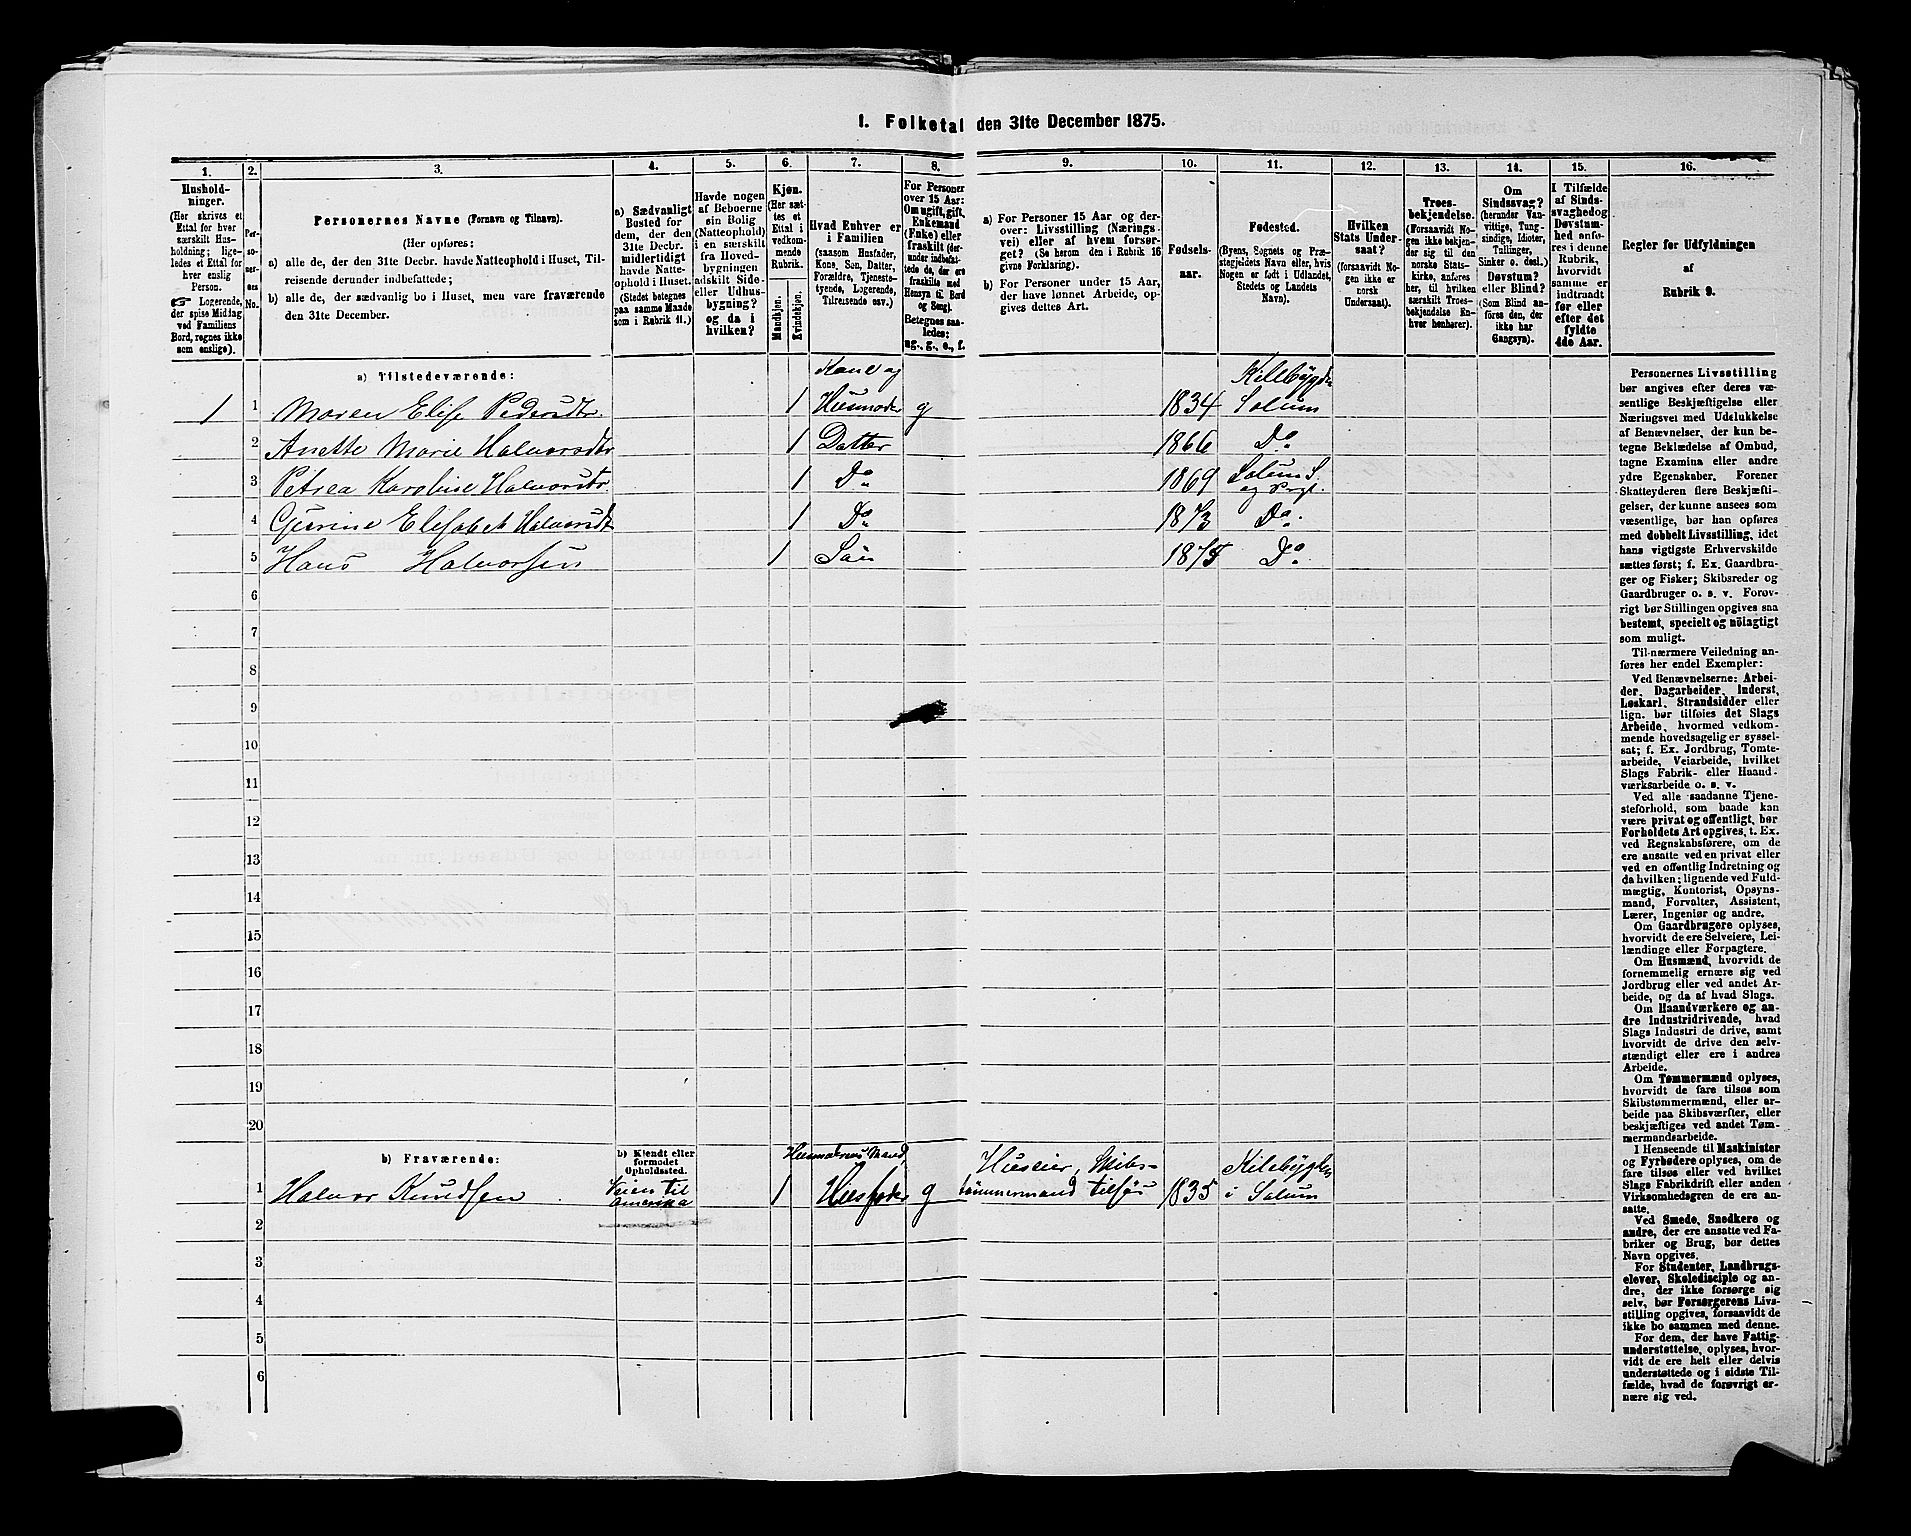 1. Folketal den 31te December 1875.
1.
Hushold-
ninger.
(Her skrives et
Ettal for hver
særskilt Hus-
holdning; lige-
ledes et Ettal for
hver enslig
Person.
Logerende,
der spise Middag
ved Familiens
Bord, regnes ikke
som enslige).
2.
Per-
so-
ner-
nes
No.
3.
Personernes Navne (Fornavn og Tilnavn).
(Her opføres:
a) alle de, der den 31te Decbr. havde Natteophold i Huset, Til-
reisende derunder indbefattede;
b) alle de, der sædvanlig bo i Huset, men vare fraværende
den 31te December.
4.
a) Sædvanligt
Bosted for
dem, der den
31te Decbr.
midlertidigt
havde Natte-
ophold i Huset.
(Stedet betegnes
paa samme Maade
som i Rubrik 11.)
5.
Havde nogen
af Beboerne
sin Bolig
(Natteophold)
i en særskilt
fra Hoved-
bygningen
adskilt Side-
eller Udhus-
bygning?
og da i
hvilken?
6.
Kjøn.
(Her sæt-
tes et
Ettal i
vedkom-
mende
Rubrik.
Mandkjøn.
Kvindekjøn.
7.
Hvad Enhver er
i Familien
(saasom Husfader,
Kone, Søn, Datter,
Forældre, Tjeneste-
tyende, Logerende,
Tilreisende osv.)
8.
For Personer
over 15 Aar:
Om ugift, gift,
Enkemand
(Enke) eller
fraskilt (der-
under indbefat-
tede de, der ere
fraskilte med
Hensyn til Bord
og Seng).
Betegnes saa-
ledes:
ug., g., e., f.
9.
a) For Personer 15 Aar og der-
over: Livsstilling (Nærings-
vei) eller af hvem forsør-
get? (Se herom den i Rubrik 16
givne Forklaring).
b) For Personer under 15 Aar,
der have lønnet Arbeide, op-
gives dettes Art.
10.
Fødsels-
aar.
11.
Fødested.
(Byens, Sognets og Præ-
stegjeldets Navn eller, hvis
Nogen er født i Udlandet,
Stedets og Landets
Navn).
12.
Hvilken
Stats Under-
saat?
(forsaavidt No-
gen ikke er
norsk
Undersaat).
13.
Troes-
bekjendelse.
(Forsaavidt No-
gen ikke bekjen-
der sig til den
norske Stats-
kirke, anføres
her, til hvilken
særskilt Troes-
bekjendelse En-
hver henhører).
14.
Om
Sindssvag?
(herunder Van-
vittige, Tung-
sindige, Idioter,
Tullinger,
Sinker o. desl.)
Døvstum?
eller Blind?
(Som Blind an-
føres den, der
ikke har
Gangsyn).
15.
I Tilfælde
af Sinds-
svaghed og
Døvstum-
hed anfø-
res i denne
Rubrik,
hvorvidt
samme er
indtraadt
før eller
efter det
fyldte
4de Aar.
16.
Regler for Udfyldningen
af
Rubrik 9.
a) Tilstedeværende:
Kone og Killebygden
1 1 Maren Elise Pedersdtr. 1 Husmoder g 1834 Solum
2 Anette Marie Halvorsdtr 1 Datter 1866 Do
3 Petrea Karoline Halvorsdtr. 1 Do 1869 Solum S.
og Prgl.
4 Gurine Elisabet Halvorsdt 1 Do 1873 Do.
5 Hans Halvorsen 1 Søn 1875 Do
6
7
8
9
10
11
12
13
14
15
16
17
18
19
20
b) Fraværende:
b) Kjendt eller
formodet
Opholdssted.
Husmoderens Mand, Huseier, Skibs- Killebygden
1 Halvor Knudsen Veien til 1 Husfader g tømmermand tilsøs 1835 i Solum
Amerika
2
3
4
5
6
Personernes Livsstilling
bør angives efter deres væ-
sentlige Beskjæftigelse eller
Næringsvei med Udelukkelse
af Benævnelser, der kun be-
tegne Beklædelse af Ombud,
tagne Examina eller andre
ydre Egenskaber. Forener
Skatteyderen flere Beskjæfti-
gelser, der kunne ansees som
væsentlige, bør han opføres
med dobbelt Livsstilling, idet
hans vigtigste Erhvervskilde
sættes først; f. Ex. Gaardbru-
ger og Fisker; Skibsreder og
Gaardbruger o. s. v. Forøv-
rigt bør Stillingen opgives saa
bestemt, specielt og nøiagtigt
som muligt.
Til nærmere Veiledning an-
føres her endel Exempler:
Ved Benævnelserne: Arbei-
der, Dagarbeider, Inderst,
Løskarl, Strandsidder eller
lign. bør tilføies det Slags
Arbeide, hvormed vedkom-
mende hovedsagelig er syssel-
sat; f. Ex. Jordbrug, Tomte-
arbeide, Veiarbeide, hvilket
Slags Fabrik- eller Haand-
værksarbeide o. s. v.
Ved alle saadanne Tjene-
steforhold, som baade kan
være privat og offentligt, bør
Forholdets Art opgives, t. Ex.
ved Regnskabsførere, om de
ere ansatte ved en privat eller
ved en offentlig Indretning og
da hvilken; lignende ved Fuld-
mægtig, Kontorist, Opsyns-
mand, Forvalter, Assistent,
Lærer, Ingeniør og andre.
Om Gaardbrugere oplyses,
hvorvidt de ere Selveiere, Lei-
lændinge eller Forpagtere.
Om Husmænd, hvorvidt de
fornemmelig ernære sig ved
Jordbrug eller ved andet Ar-
beide, og da af hvad Slags.
Om Haandværkere og an-
dre Industridrivende, hvad
Slags Industri de drive, samt
hvorvidt de drive den selv-
stændigt eller ere i andres
Arbeide.
Om Tømmermænd oplyses,
hvorvidt de fare tilsøs som
Skibstømmermænd, eller ar-
beide paa Skibsværfter, eller
beskjæftiges ved andet Tøm-
mermandsarbeide.
I Henseende til Maskinister
og Fyrbødere oplyses, om de
fare tilsøs eller ved hvilket
Slags Fabrikdrift eller anden
Virksomhedsgren de ere an-
satte.
Ved Smede, Snedkere og
andre, der ere ansatte ved Fa-
briker og Brug, bør dettes
Navn opgives.
For Studenter, Landbrugs-
elever, Skoledisciple og an-
dre, der ikke forsørge sig
selv, bør Forsørgerens Livs-
stilling opgives, forsaavidt de
ikke bo sammen med denne.
For dem, der have Fattig-
understøttelse, oplyses, hvor-
vidt de ere helt eller delvis
understøttede og i sidste Til-
fælde, hvad de forøvrigt er-
nære sig ved.